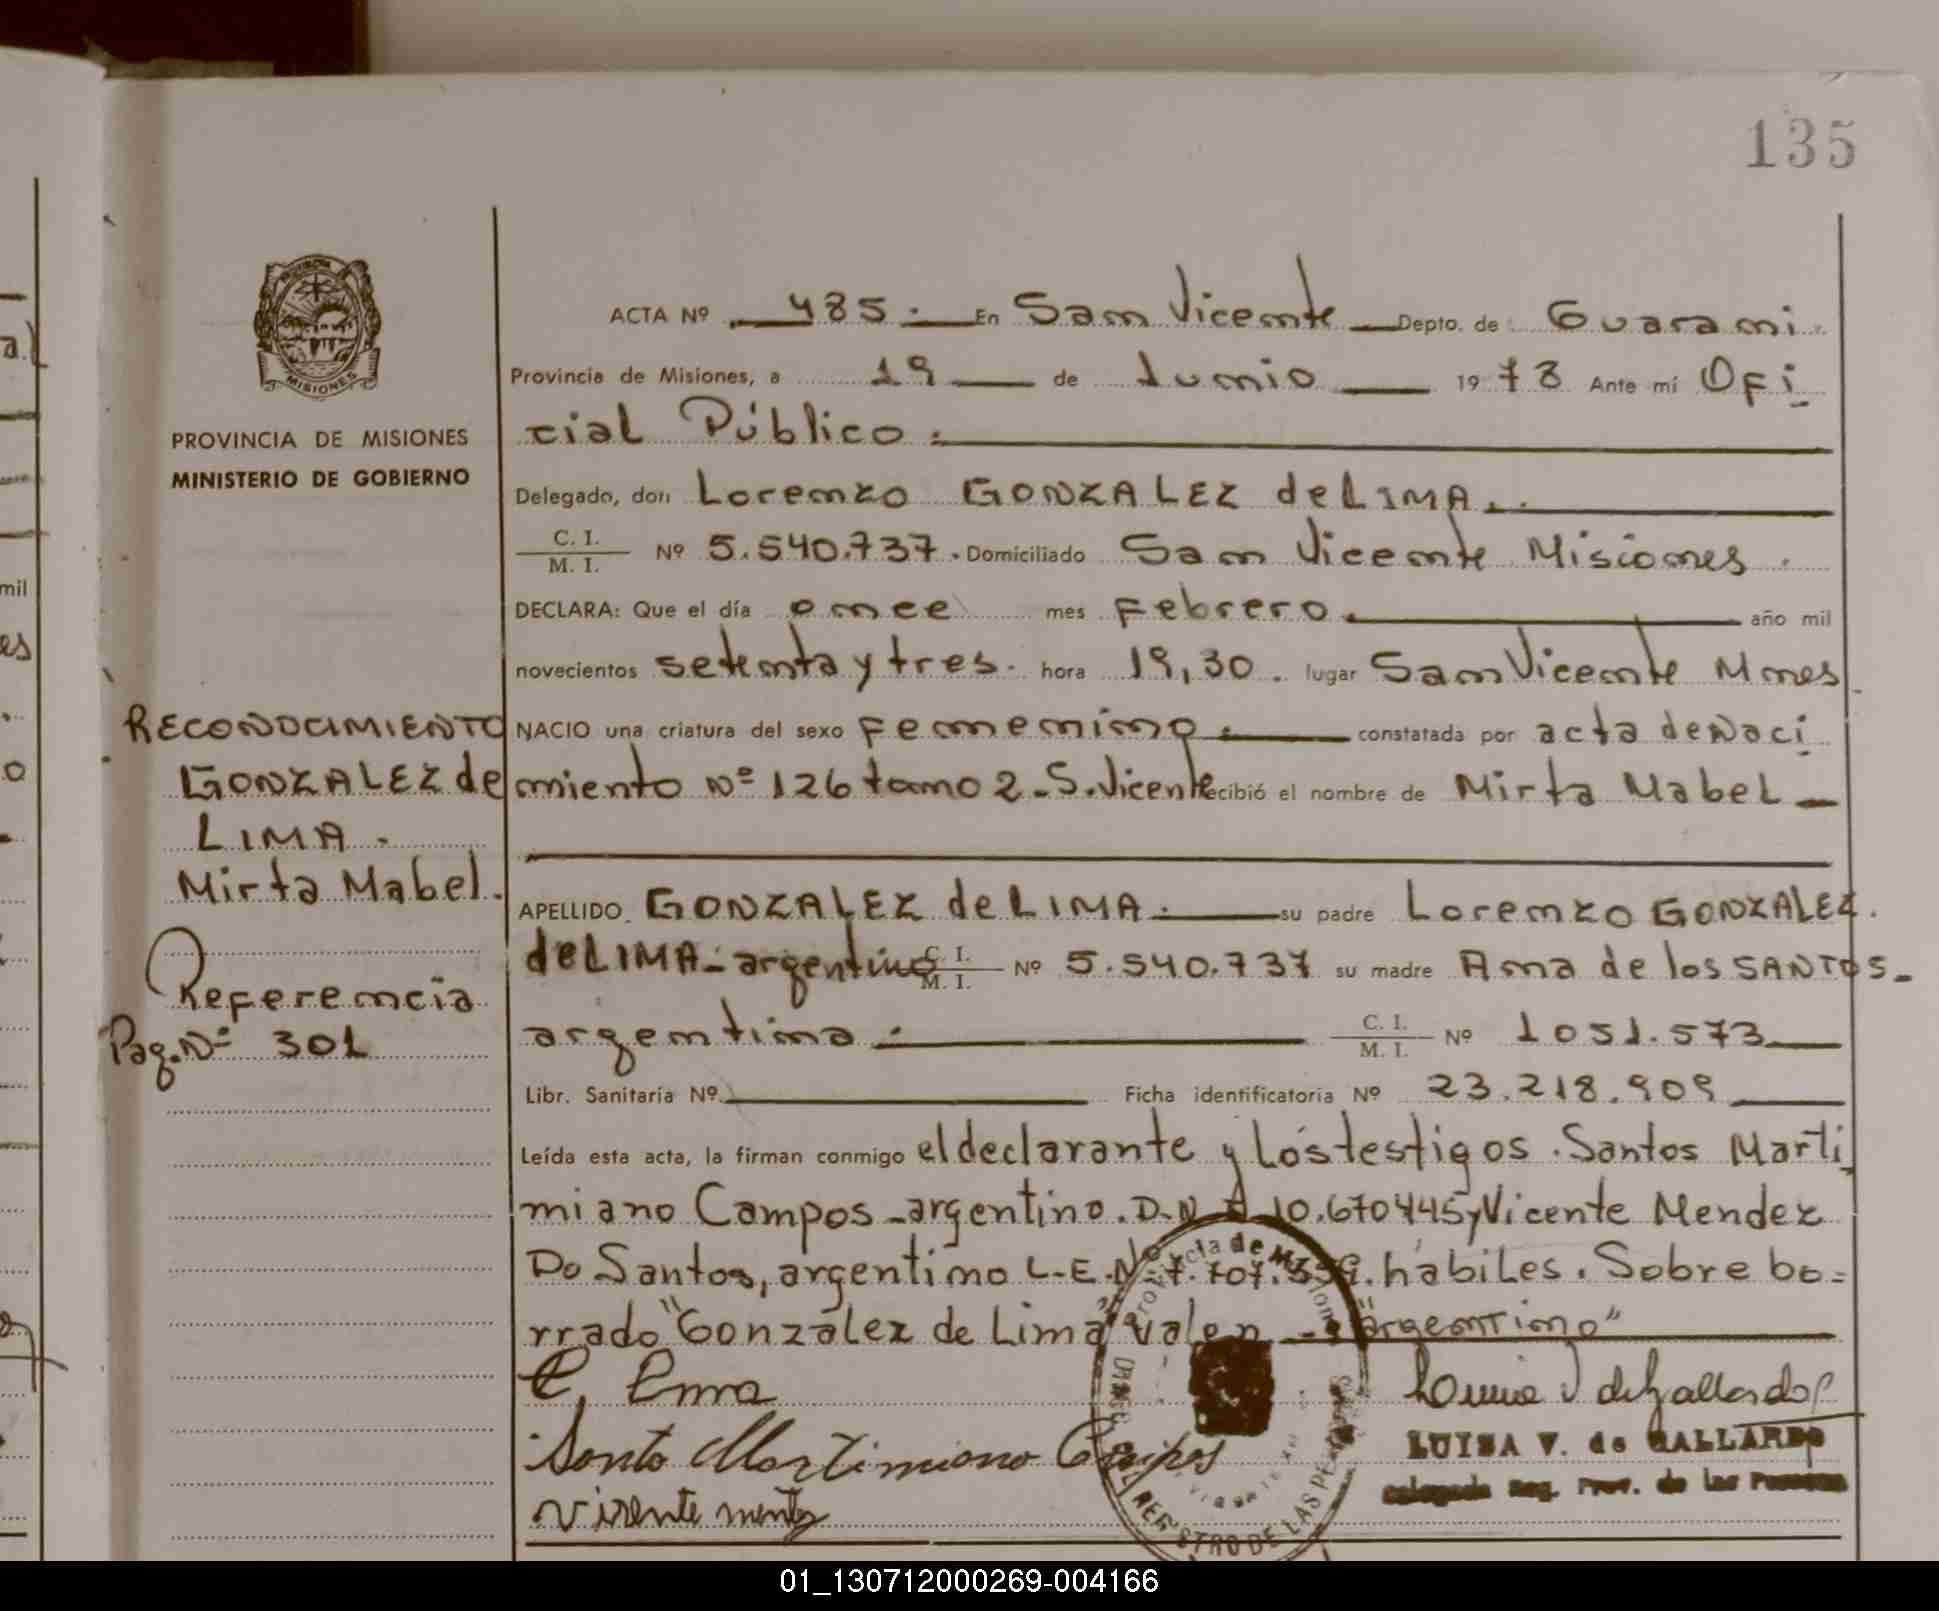 135
ACTA Nº 485. En San Vicente Depto. de Guarani
Provincia de Misiones, a 19 de Junio 1978 Ante mí Ofi
cial Público.
PROVINCIA DE MISIONES
MINISTERIO DE GOBIERNO
Delegado, don Lorenzo GONZALEZ de LIMA.
C. I.
M. I. Nº 5.540.737. Domiciliado San Vicente Misiones.
DECLARA: Que el día once mes Febrero. año mil
novecientos setenta y tres. hora 19,30. lugar San Vicente Mnes
NACIO una criatura del sexo Femenino. constatada por acta de Naci
miento Nº 126 tomo 2_S.Vicente recibió el nombre de Mirta Mabel
APELLIDO GONZALEZ de LIMA. su padre Lorenzo GONZALEZ.
de LIMA - argentino C. I. M. I. Nº 5.540.737 su madre Ana de los SANTOS.
argentina. C. I. M. I. Nº 1051.573
Libr. Sanitaria Nº. Ficha identificatoria Nº 23.218.909
Leída esta acta, la firman conmigo el declarante y Los testigos. Santos Marti
miano Campos_argentino. D.N. 10.670445 y Vicente Mendez
Do Santos, argentino L.E.Nº habiles. Sobre bo=
rrado "Gonzalez de Lima" valen "argentino"
RECONOCIMIENTO
GONZALEZ de
LIMA.
Mirta Mabel.
Referencia
Pag. Nº 301
Santo Martimiano Campos
LUISA V. de GALLARDO
Delegada Reg. Prov. de las Personas
Provincia de Misiones
REGISTRO DE LAS PERSONAS
MISIONES
mil
es
01_130712000269-004166